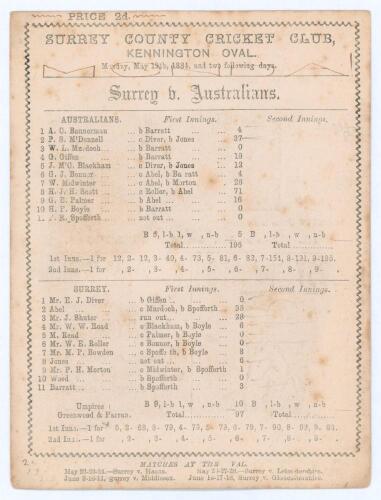 PRICE 2d.
SURREY COUNTY CRICKET CLUB,
KENNINGTON OVAL.
Monday, May 19th, 1884, and two following days.
Surrey v. Australians.
AUSTRALIANS. First Innings. Second Innings.
1 A. C. Bannerman ... b Barratt ... 4
2 P. S. McDonnell ... c Diver, b Jones ... 37
3 W. L. Murdoch ... b Barratt ... 0
4 G. Giffen ... b Barratt ... 19
5 J. M'C. Blackham ... c Diver, b Jones ... 12
6 G. J. Bonnor ... c Abel, b Barratt 4
7 W. Midwinter ... c Abel, b Morton ... 28
8 H. J. H. Scott ... c Roller, b Abel ... 71
9 G. E. Palmer ... b Abel ... 16
10 H. F. Boyle ... b Barratt ... 0
11 F. R. Spofforth ... not out ... 0
B 5, l-b 1, w , n-b 5 B , l-b , w , n-b
Total ... 196 Total ...
1st Inns.—1 for 12, 2- 12, 3- 40, 4- 73, 5- 81, 6- 83, 7-151, 8-131, 9-195.
2nd Inns.—1 for , 2- , 3- , 4- , 5- , 6- , 7- , 8- , 9- .
SURREY. First Innings. Second Innings.
1 Mr. E. J. Diver ... b Giffen ... 0
2 Abel ... c Murdoch, b Spofforth 38
3 Mr. J. Shuter ... run out ... 28
4 Mr. W. W. Read ... c Blackham, b Boyle 6
5 M. Read ... c Palmer, b Boyle 0
6 Mr. W. E. Roller ... c Bonnor, b Boyle 0
7 Mr. M. P. Bowden ... c Spofforth, b Boyle 8
8 Jones ... not out ... 6
9 Mr. P. H. Morton ... c Midwinter, b Spofforth 1
10 Wood ... b Spofforth ... 0
11 Barratt ... b Spofforth 3
Umpires: B 9, l-b 1, w , n-b 10 B , l-b , w , n-b
Greenwood & Farran. Total ... 97 Total ...
1st Inns.—1 for 5, 2- 68, 3- 79, 4- 73, 5- 73, 6- 79, 7- 90, 8- 93, 9- 93.
2nd Inns.—1 for , 2- , 3- , 4- , 5- , 6- , 7- , 8- , 9- .
MATCHES AT THE OVAL.
May 22-23-24.—Surrey v. Hants. May 26-27-28.—Surrey v. Leicestershire.
June 9-10-11, Surrey v. Middlesex. June 16-17-18, Surrey v. Gloucestershire.